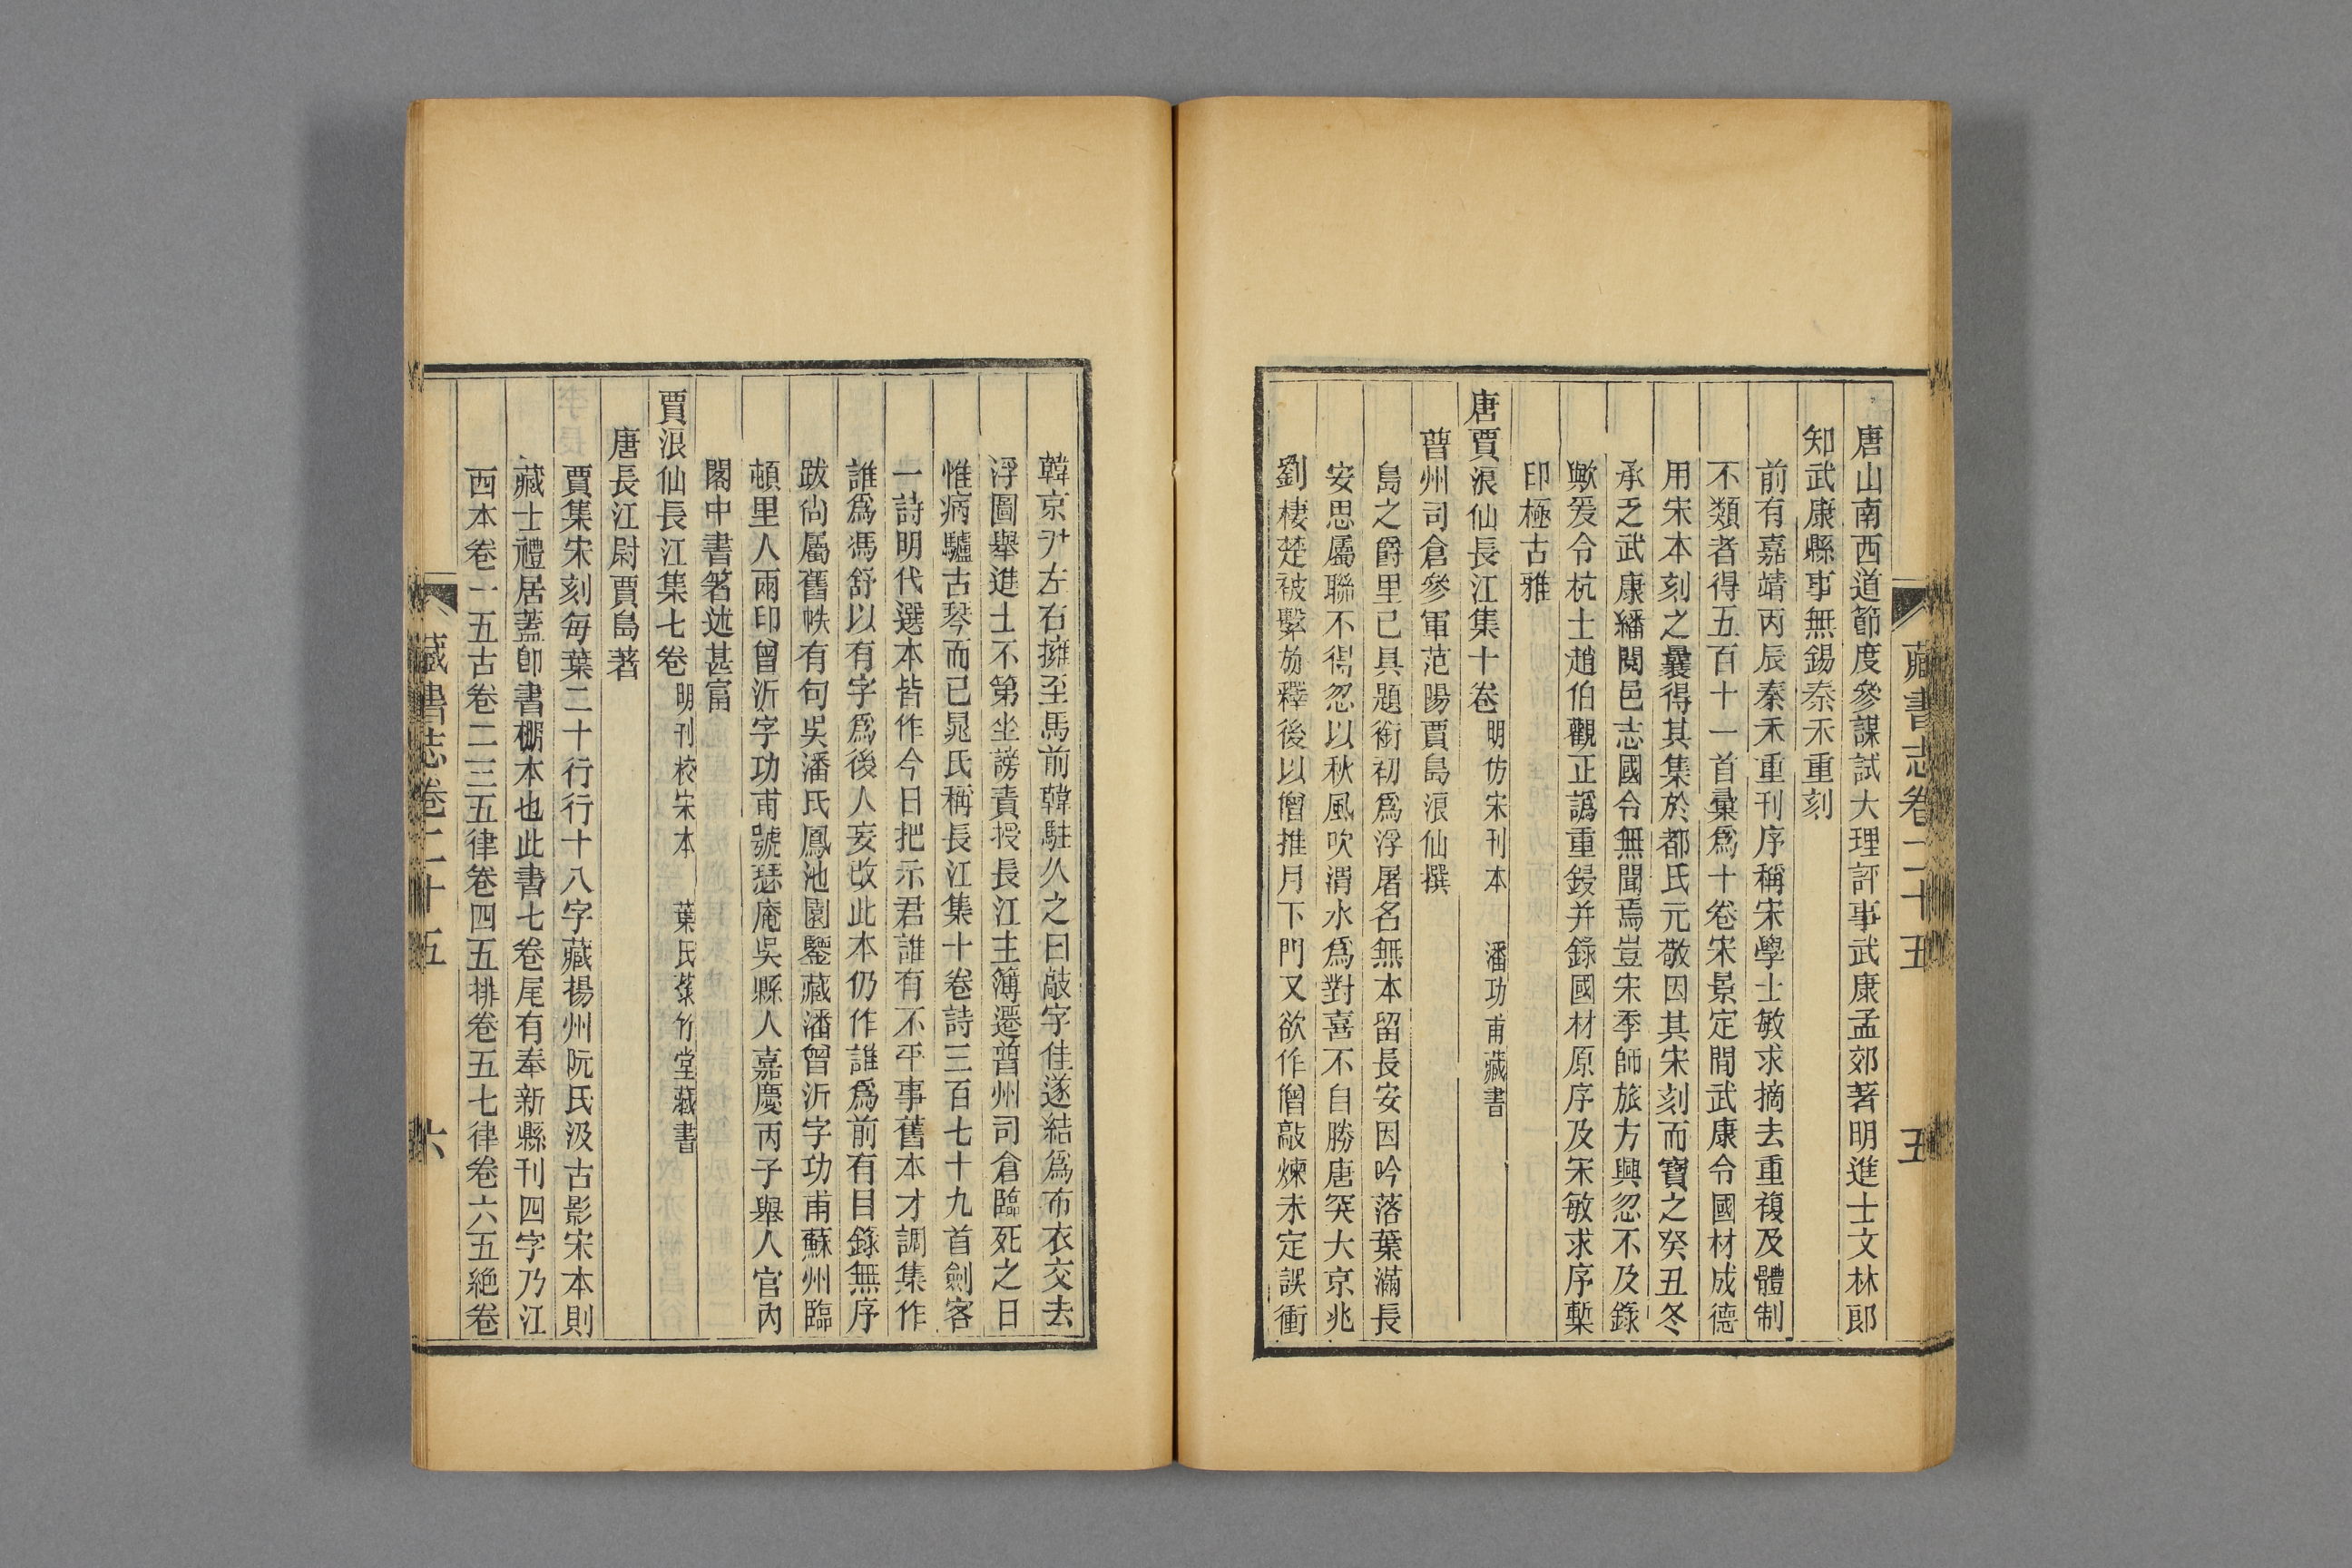 藏書志卷二十五
五
唐山南西道節度參謀試大理評事武康孟郊著明進士文林郎
知武康縣事無錫秦禾重刻
前有嘉靖丙辰秦禾重刊序稱宋學士敏求摘去重複及體制
不類者得五百十一首彙爲十卷宋景定間武康令國材成德
用宋本刻之曩得其集於都氏元敬因其宋刻而寶之癸丑冬
承乏武康繙閱邑志國令無聞焉豈宋季師旅方興忽不及錄
歟爰令杭士趙伯觀正譌重鋟并錄國材原序及宋敏求序槧
印極古雅
唐賈浪仙長江集十卷 明仿宋刊本 潘功甫藏書
普州司倉參軍范陽賈島浪仙撰
島之爵里已具題銜初爲浮屠名無本留長安因吟落葉滿長
安思屬聯不得忽以秋風吹渭水爲對喜不自勝唐突大京兆
劉棲楚被繫旬釋後以僧推月下門又欲作僧敲煉未定誤衝
韓京尹左右擁至馬前韓駐久之曰敲字佳遂結爲布衣交去
浮圖舉進士不第坐謗責授長江主簿遷普州司倉臨死之日
惟病驢古琴而已晁氏稱長江集十卷詩三百七十九首劍客
一詩明代選本皆作今日把示君誰有不平事舊本才調集作
誰爲馮舒以有字爲後人妄改此本仍作誰爲前有目錄無序
跋尙屬舊帙有句吳潘氏鳳池園鑒藏潘曾沂字功甫蘇州臨
頓里人兩印曾沂字功甫號瑟庵吳縣人嘉慶丙子舉人官內
閣中書箸述甚富
賈浪仙長江集七卷 明刊校宋本 葉氏菉竹堂藏書
唐長江尉賈島著
賈集宋刻每葉二十行行十八字藏揚州阮氏汲古影宋本則
藏士禮居蓋卽書棚本也此書七卷卷尾有奉新縣刊四字乃江
西本卷一五古卷二三五律卷四五排卷五七律卷六五絕卷
藏書志卷二十五
六